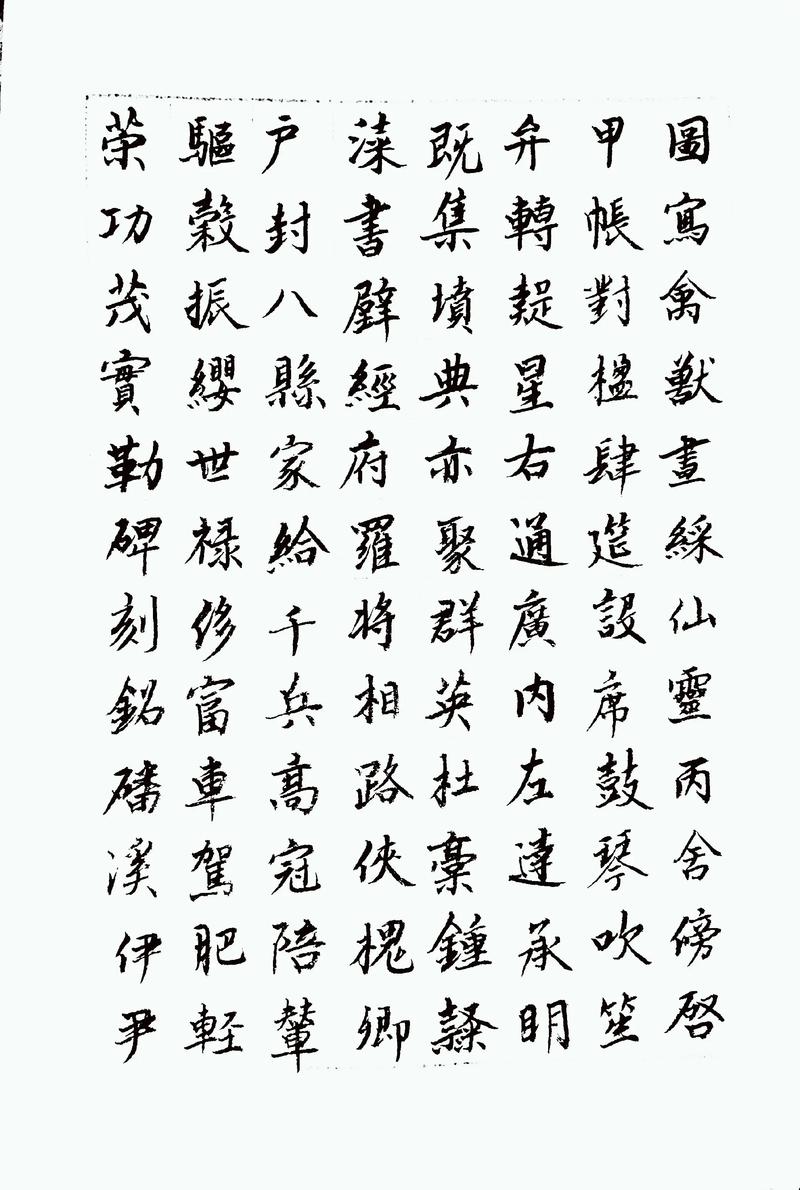 圖寫禽獸畫綵仙靈丙舍傍啓
甲帳對楹肆筵設席鼓琴吹笙
弁轉疑星右通廣内左達承明
既集墳典亦聚群英杜稾鍾隸
漆書壁經府羅將相路俠槐卿
户封八縣家給千兵高冠陪輦
驅轂振纓世禄侈富車駕肥軽
策功茂實勒碑刻銘磻溪伊尹